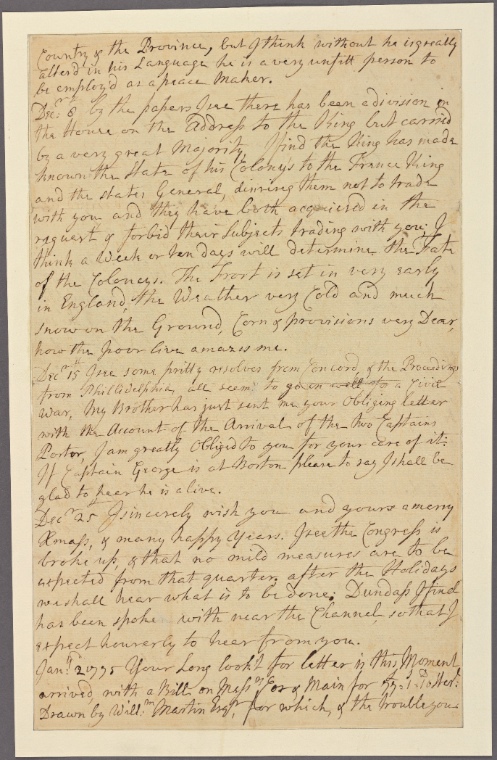 Country & the Province, but I think without he is greatly
alterd in his Language he is a very unfitt person to
be employ'd as a peace maker.
Decr 8 by the papers I see there has been a division in
the House on the Address to the King but carried
by a very great Majority. I find the King has made
known the State of his Colonys to the France King
and the states General, desiring them not to trade
with you and they have both acquiesced in the
request & forbid their Subjects trading with you; I
think a Week or ten days will determine the Fate
of the Coloneys. The Frost is set in very early
in England, the Weather very Cold and much
snow on the Ground, Corn & provisions very Dear,
how the poor live amazes me.
Decr 15 I see some pritty resolves from Concord, & the Proceedings
from Philladelphia, all seem to you in a Civil
War, My Brother has just sent me your Obliging Letter
with the Account of the Arrival of the two Captains
Porter, I am greatly Obliged to you for your care of it.
If Captain George is at Boston please to say I shall be
glad to hear he is alive.
Decr 25 I sincerely wish you and yours a merry
Xmass, & many happy Years. I see the Congress is
broke up, & that no mild measures are to be
expected from that quarter, after the Holidays
we shall hear what is to be done; Dundass I find
has been spoke with near the Channel so that I
expect hourerly to hear from you.
Jany 2 1775 Your Long look't for letter is this Moment
arrived, with a Bill on Messrs & Main for
Drawn by Willm Martin Esqr, for which, & the trouble you